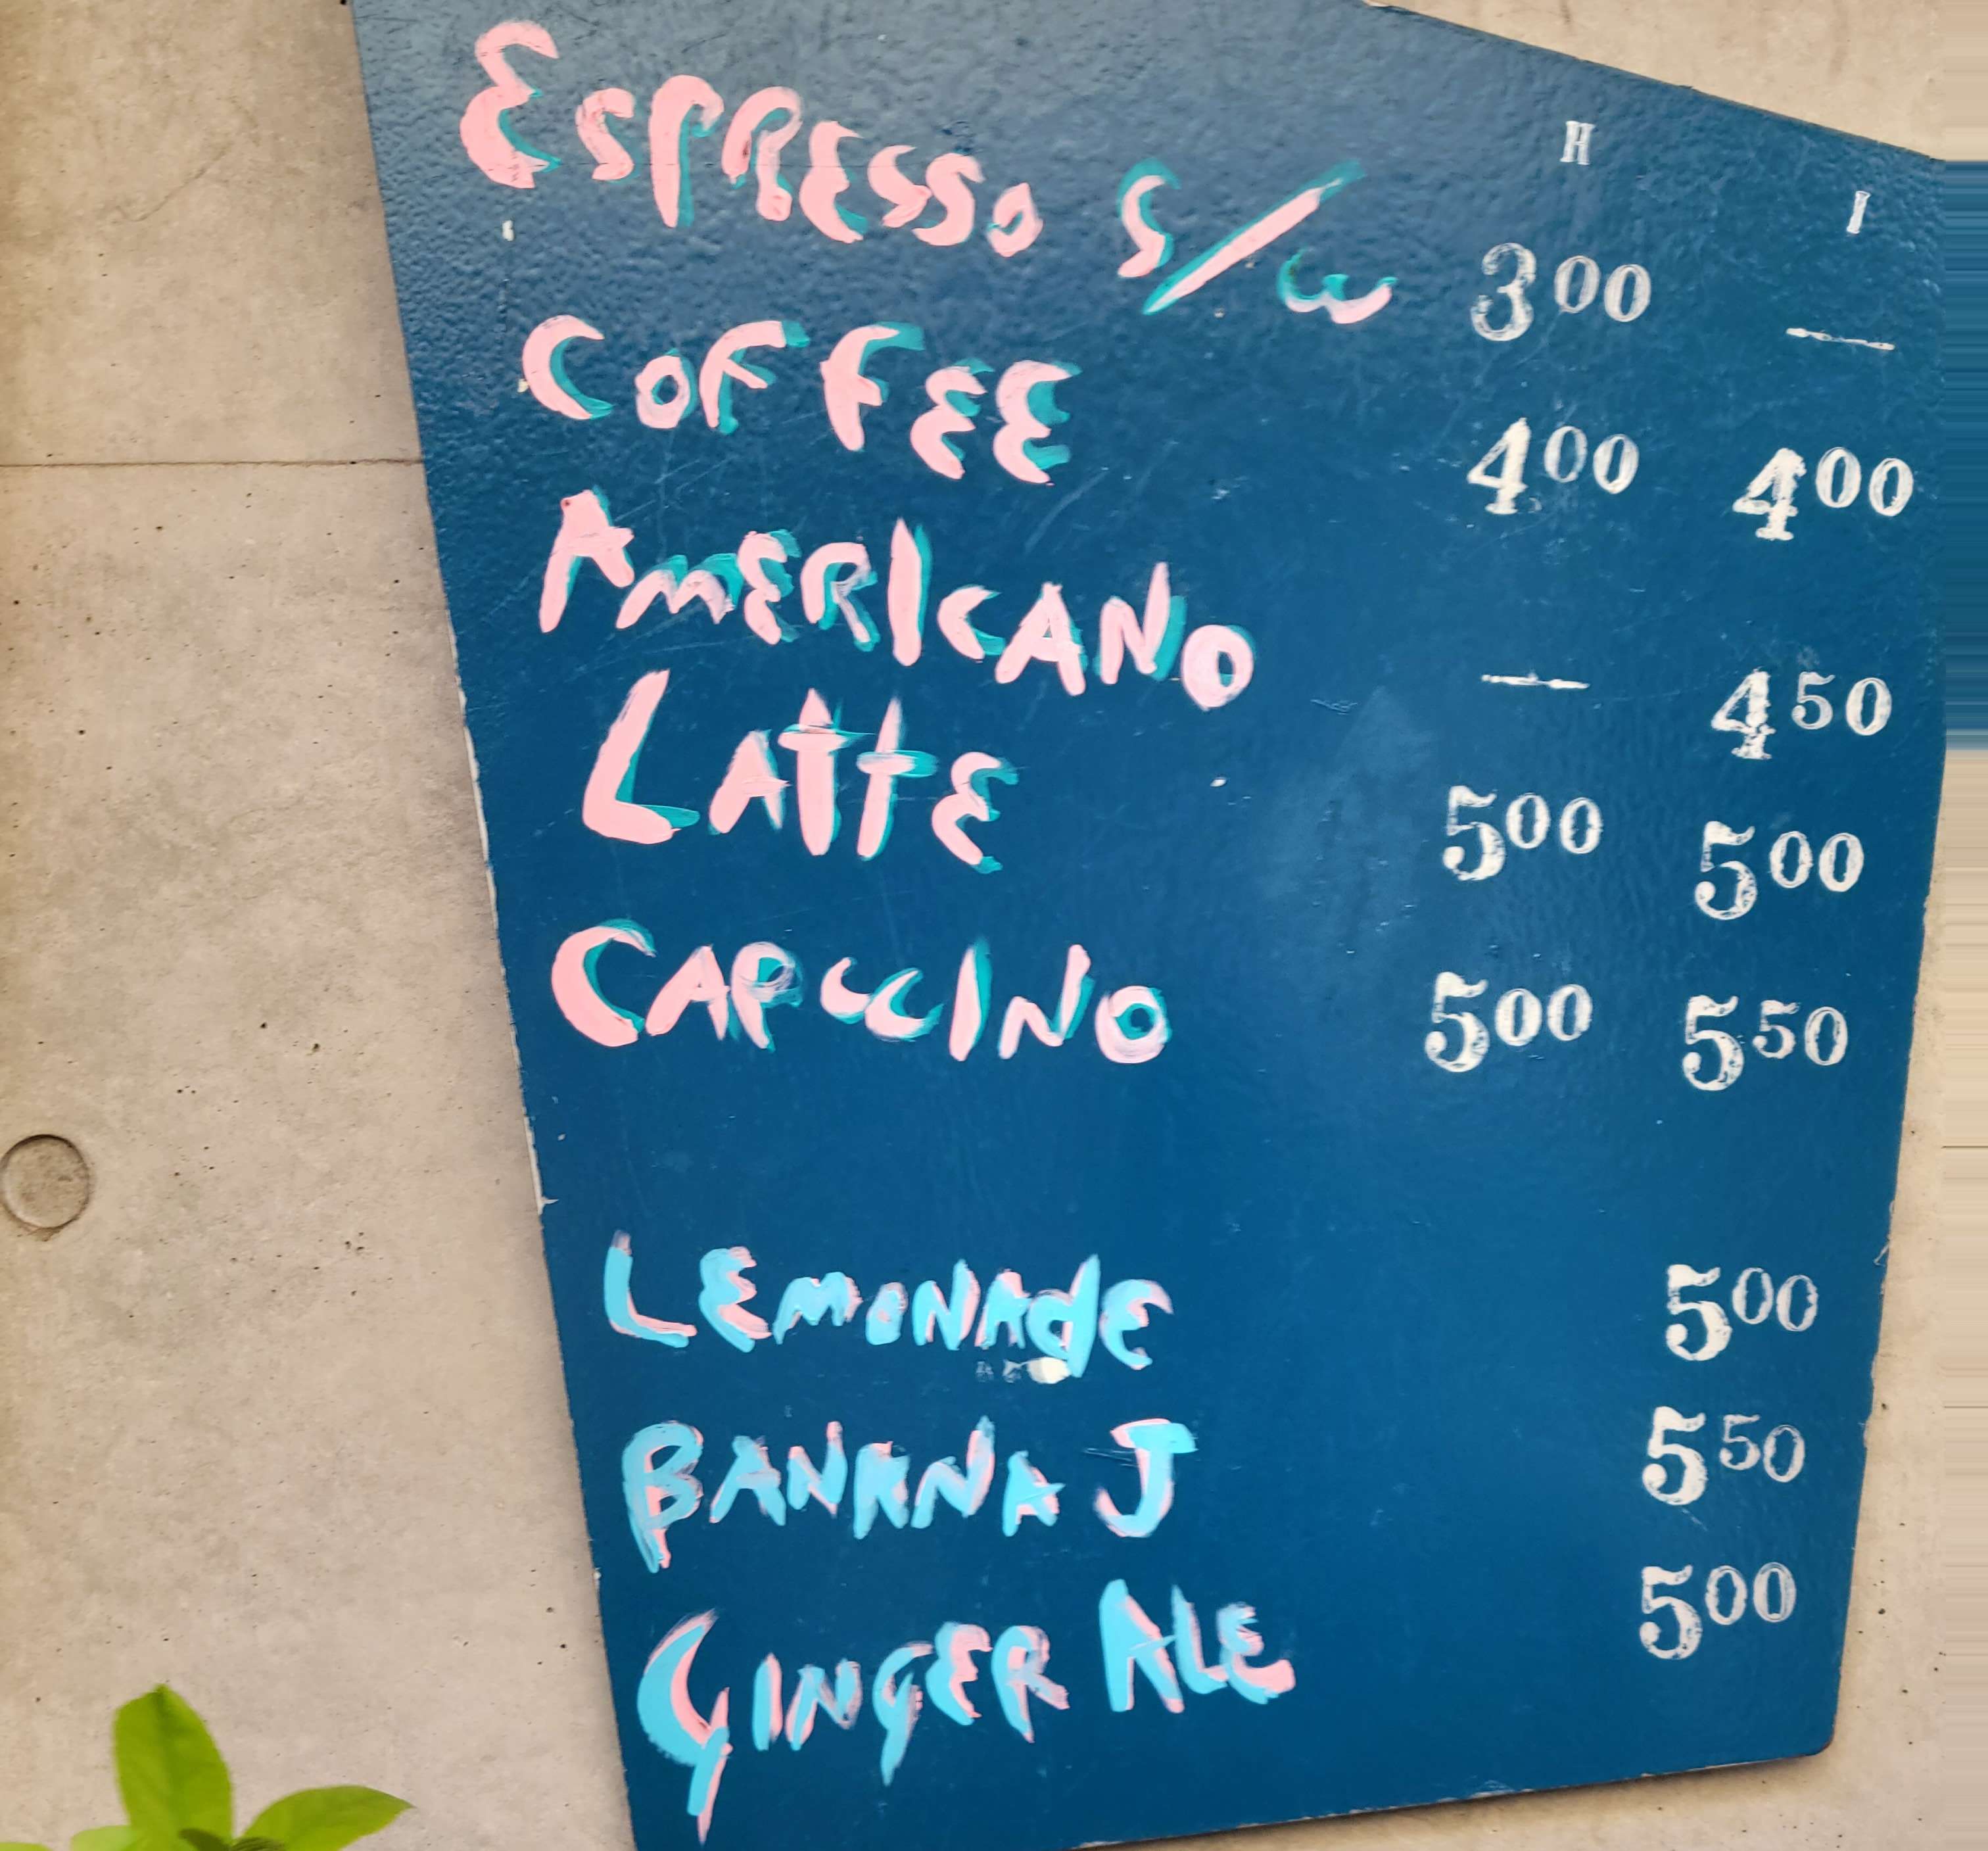 H I
ESPRESSO S/W 3 00 —
COFFEE 4 00 4 00
AMERICANO — 4 50
LATTE 5 00 5 00
CAPCCINO 5 00 5 50
LEMONAdE 5 00
BANANA J 5 50
GINGER ALE 5 00